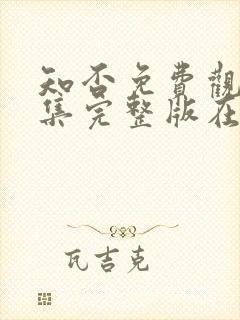 知否免費觀
集完整版在
瓦吉克